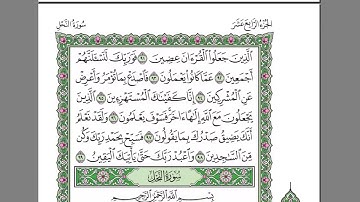 سُورَةُ النَّحْلِ
الجُزْءُ الرَّابِعَ عَشَرَ
الَّذِينَ جَعَلُوا الْقُرْءَانَ عِضِينَ ٩١ فَوَرَبِّكَ لَنَسْـَٔلَنَّهُمْ
أَجْمَعِينَ ٩٢ عَمَّا كَانُوا يَعْمَلُونَ ٩٣ فَاصْدَعْ بِمَا تُؤْمَرُ وَأَعْرِضْ
عَنِ الْمُشْرِكِينَ ٩٤ إِنَّا كَفَيْنَاكَ الْمُسْتَهْزِءِينَ ٩٥ الَّذِينَ
يَجْعَلُونَ مَعَ اللَّهِ إِلَٰهًا ءَاخَرَ فَسَوْفَ يَعْلَمُونَ ٩٦ وَلَقَدْ نَعْلَمُ
أَنَّكَ يَضِيقُ صَدْرُكَ بِمَا يَقُولُونَ ٩٧ فَسَبِّحْ بِحَمْدِ رَبِّكَ وَكُن
مِّنَ السَّاجِدِينَ ٩٨ وَاعْبُدْ رَبَّكَ حَتَّىٰ يَأْتِيَكَ الْيَقِينُ ٩٩
سُورَةُ النَّحْلِ
بِسْمِ اللَّهِ الرَّحْمَٰنِ الرَّحِيمِ